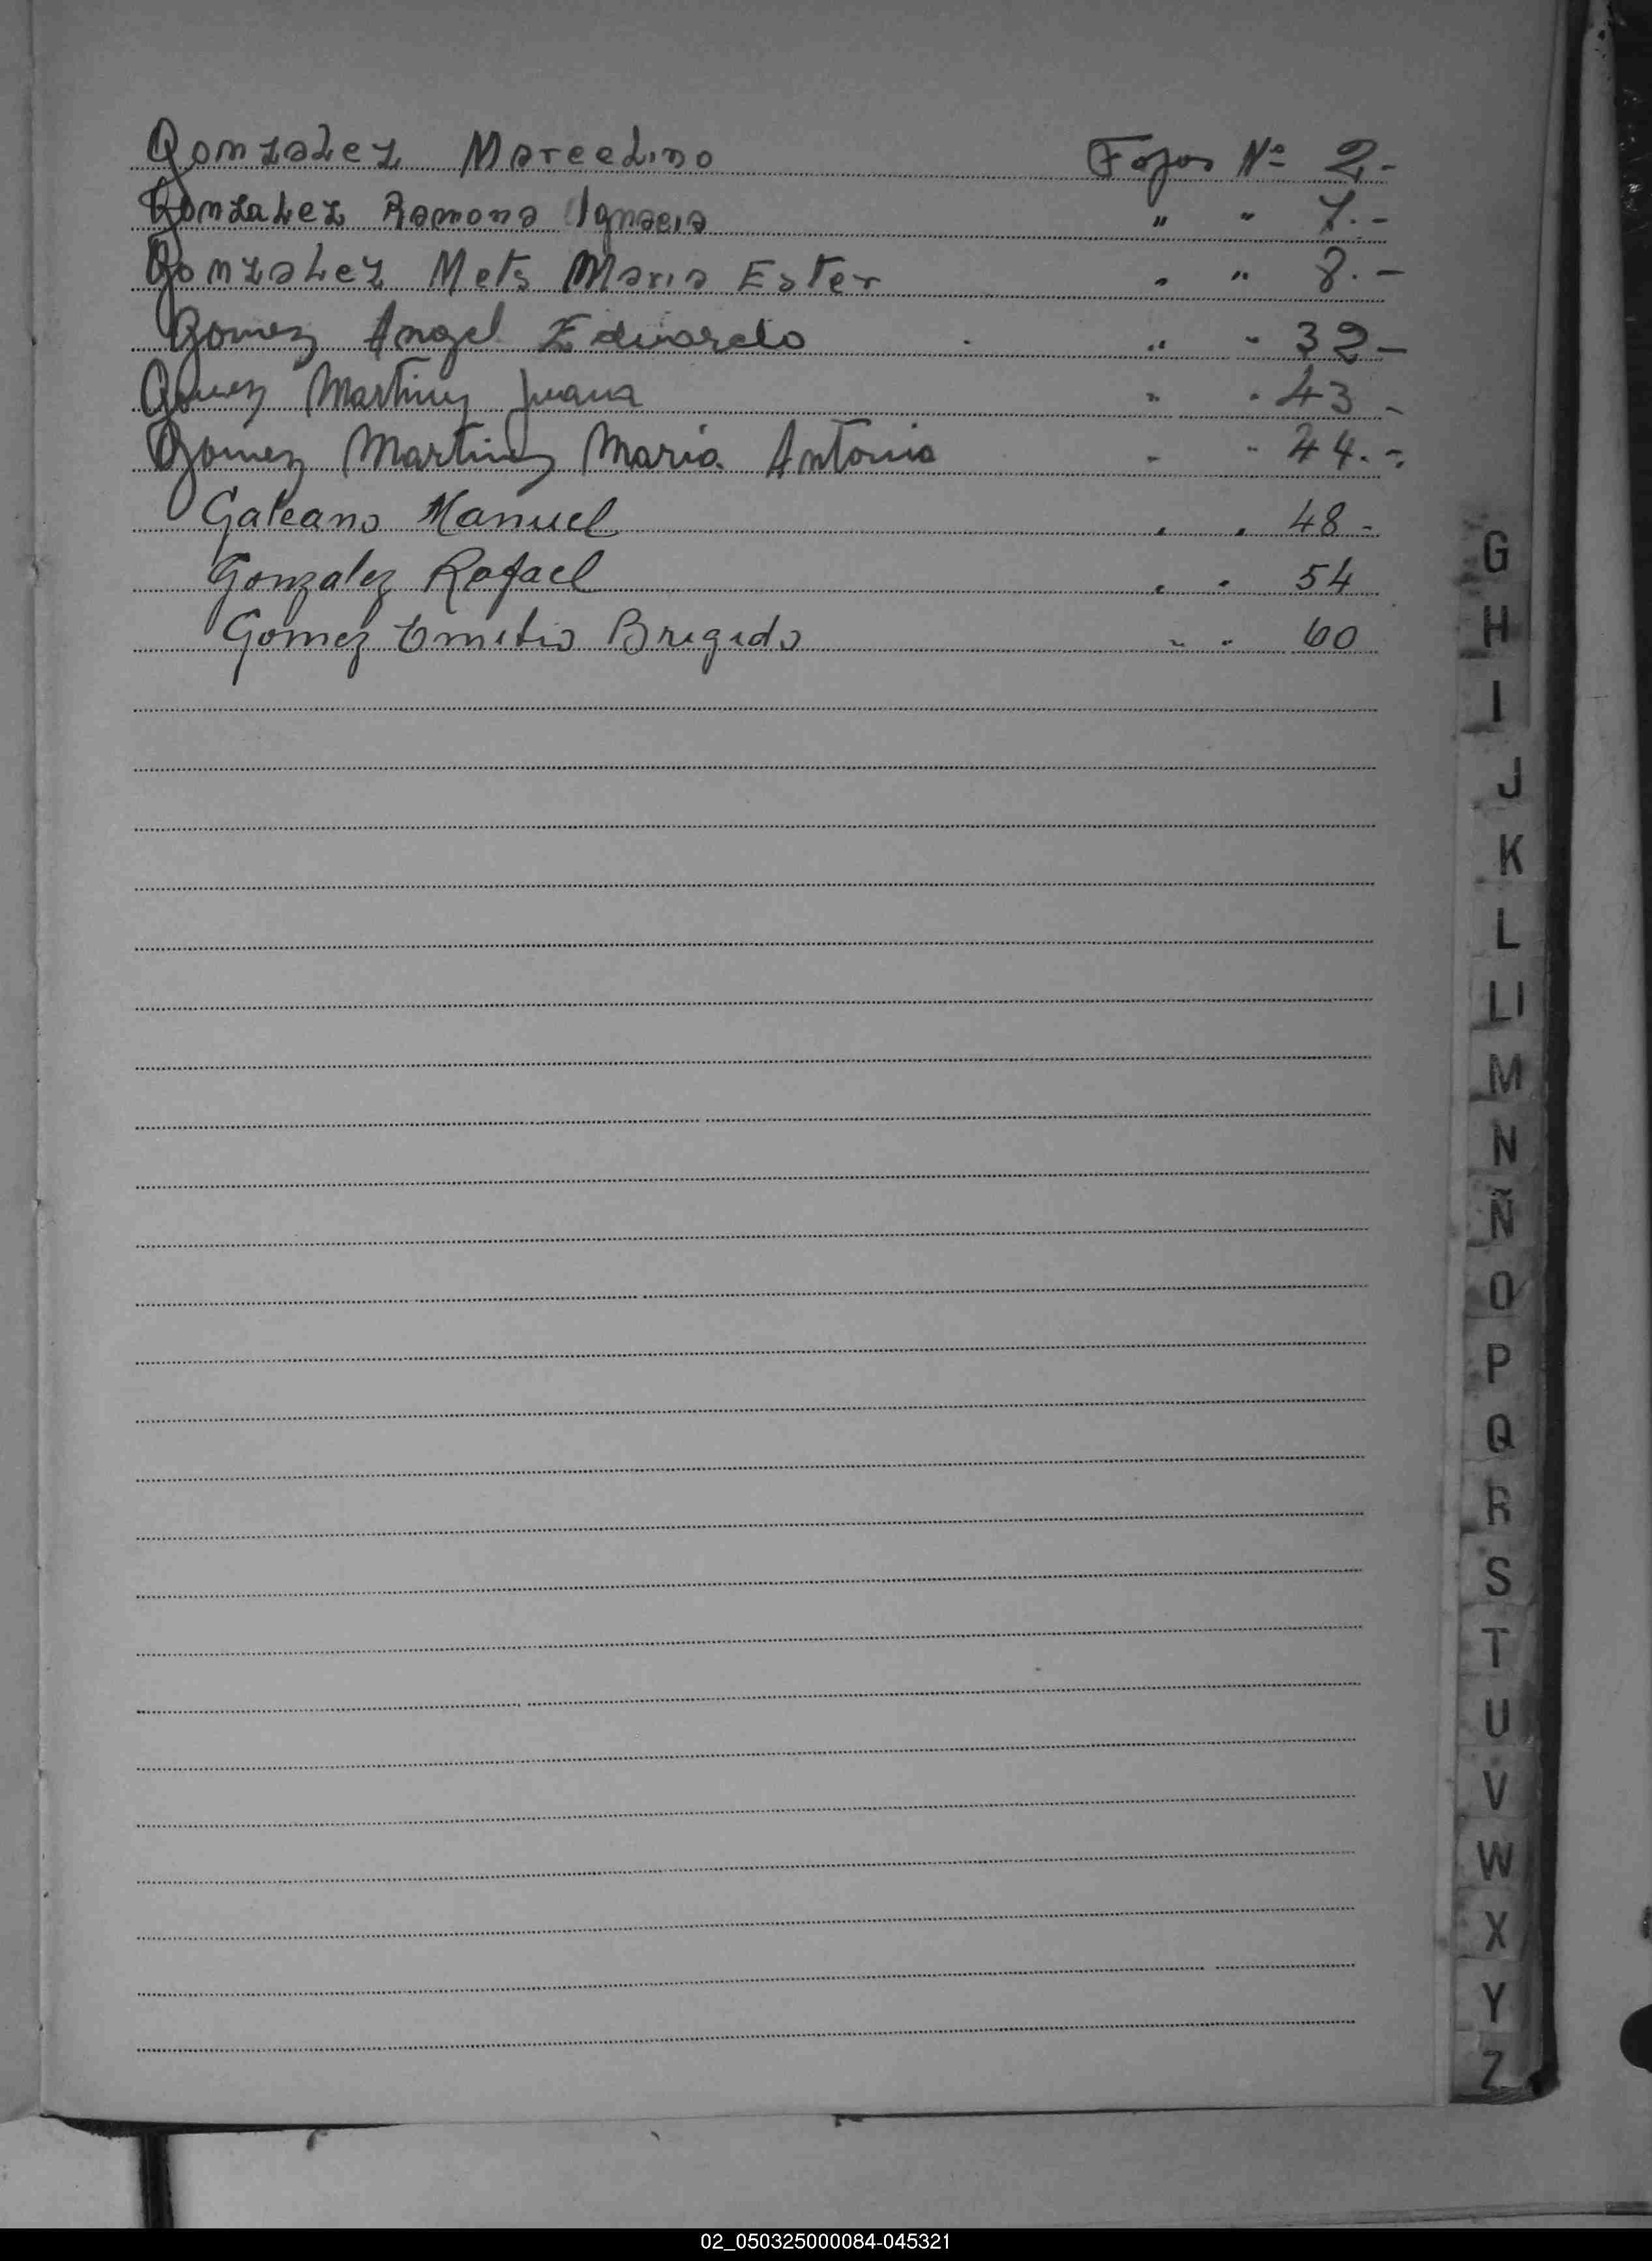 Gonzalez Marcelino Fojas Nº 2.-
Gonzalez Ramona Ignacia " " 7.-
Gonzalez Mets Maria Ester " " 8.-
Gomez Angel Eduardo " " 32-
Gomez Martinez Juana " " 43-
Gomez Martinez Maria Antonia " " 44.-
Galeano Manuel " " 48-
Gonzalez Rafael " " 54
Gomez Emilio Brigido " " 60
G
H
I
J
K
L
Ll
M
N
Ñ
O
P
Q
R
S
T
U
V
W
X
Y
Z
02_050325000084-045321